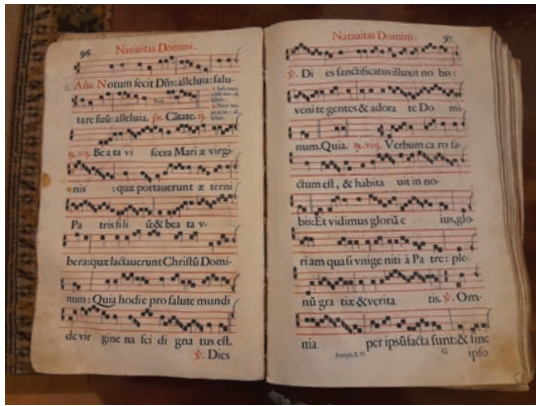 96 Natiuitas Domini.
Añ. Notum fecit Dñs: alleluia: salu-
tare suũ: alleluia. ps. Cãtate. ij.
R. vij. Be a ta vi scera Mari æ virgi-
nis : quæ portauerunt æ terni
Pa tris fi li ũ: & bea ta v-
bera: quæ lactauerunt Christũ Domi-
num: Quia hodie pro salute mundi
de vir gine na sci di gna tus est.
℣. Dies
Natiuitas Domini. 97
℣. Di es sanctificatus illuxit no bis:
veni te gentes & adora te Do mi-
num. Quia. R. viij. Verbum ca ro fa-
ctum est, & habita uit in no-
bis: Et vidimus gloriã e ius, glo-
ri am qua si vnige niti à Pa tre: ple-
nũ gra tiæ & verita tis. ℣. Om-
nia per ipsũ facta sunt: & sine
G
ipso